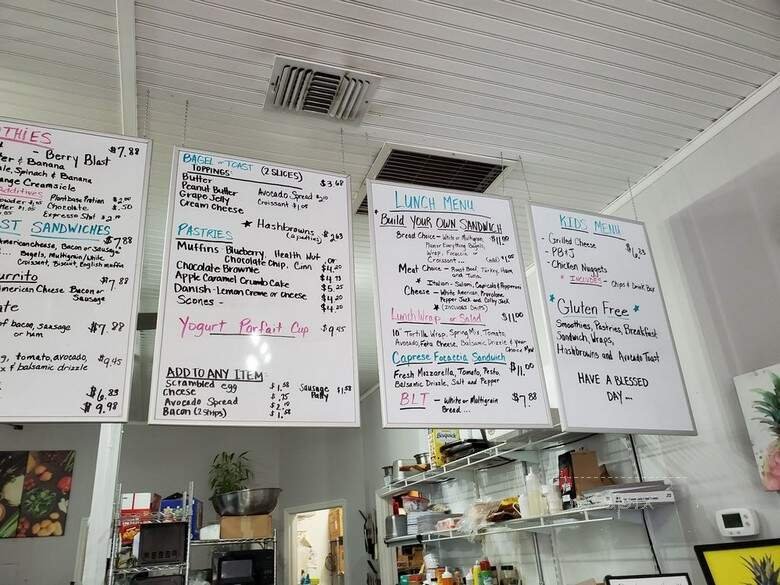 THIES
- Berry Blast $7.88
er & Banana
ale, Spinach & Banana
ange Creamsicle
Additives
Plantbase Protion $2.00
Chocolate. $.50
Espresso Shot $2.00
ST SANDWICHES
$7.88
American cheese, Bacon or Sausage
Bagels, Multigrain/White
Croissant, Biscuit, English muffin
urrito $7.88
American Cheese Bacon or
Sausage
of bacon, sausage $7.88
or ham
g, tomato, avocado, $9.45
x & balsamic drizzle
$6.83
$9.98
BAGEL or TOAST (2 SLICES)
TOPPINGS
Butter $3.68
Peanut Butter
Grape Jelly
Cream Cheese
Avocado Spread
Croissant
★ Hashbrowns $2.63
PASTRIES
Muffins Blueberry, Health Nut
Chocolate Chip, Cinn
Chocolate Brownie $4.20
Apple Caramel Crumb Cake
Danish - Lemon Creme or Cheese $4.20
Scones - $4.20
Yogurt Parfait Cup $9.45
ADD TO ANY ITEM
Scrambled egg $1.58
Cheese $.75
Avocado Spread
Bacon (2 strips)
Sausage $1.58
Patty
LUNCH MENU
★ Build YOUR OWN SANDWICH
$11.00
Bread Choice - White or Multigrain
Wrap, Focaccia or
Croissant...
Meat Choice - Roast Beef, Turkey, Ham
and Tuna
★ Italian - Salami, Capicola & Pepperoni
Cheese - White American, Provolone
Pepper Jack and Colby Jack
★ (INCLUDES CHIPS)
Lunch Wrap or Salad $11.00
10" Tortilla Wrap, Spring Mix, Tomato,
Avocado, Feta Cheese, Balsamic Drizzle & your
Choice Meat
Caprese Focaccia Sandwich
$11.00
Fresh Mozzarella, Tomato, Pesto,
Balsamic Drizzle, Salt and Pepper
BLT - White or Multigrain $7.88
Bread...
KIDS MENU
- Grilled Cheese $6.83
- PB & J
- Chicken Nuggets
★ INCLUDES - Chips & Drink Box
★ Gluten Free ★
Smoothies, Pastries, Breakfast
Sandwich, Wraps,
Hashbrowns and Avocado Toast
HAVE A BLESSED
DAY...